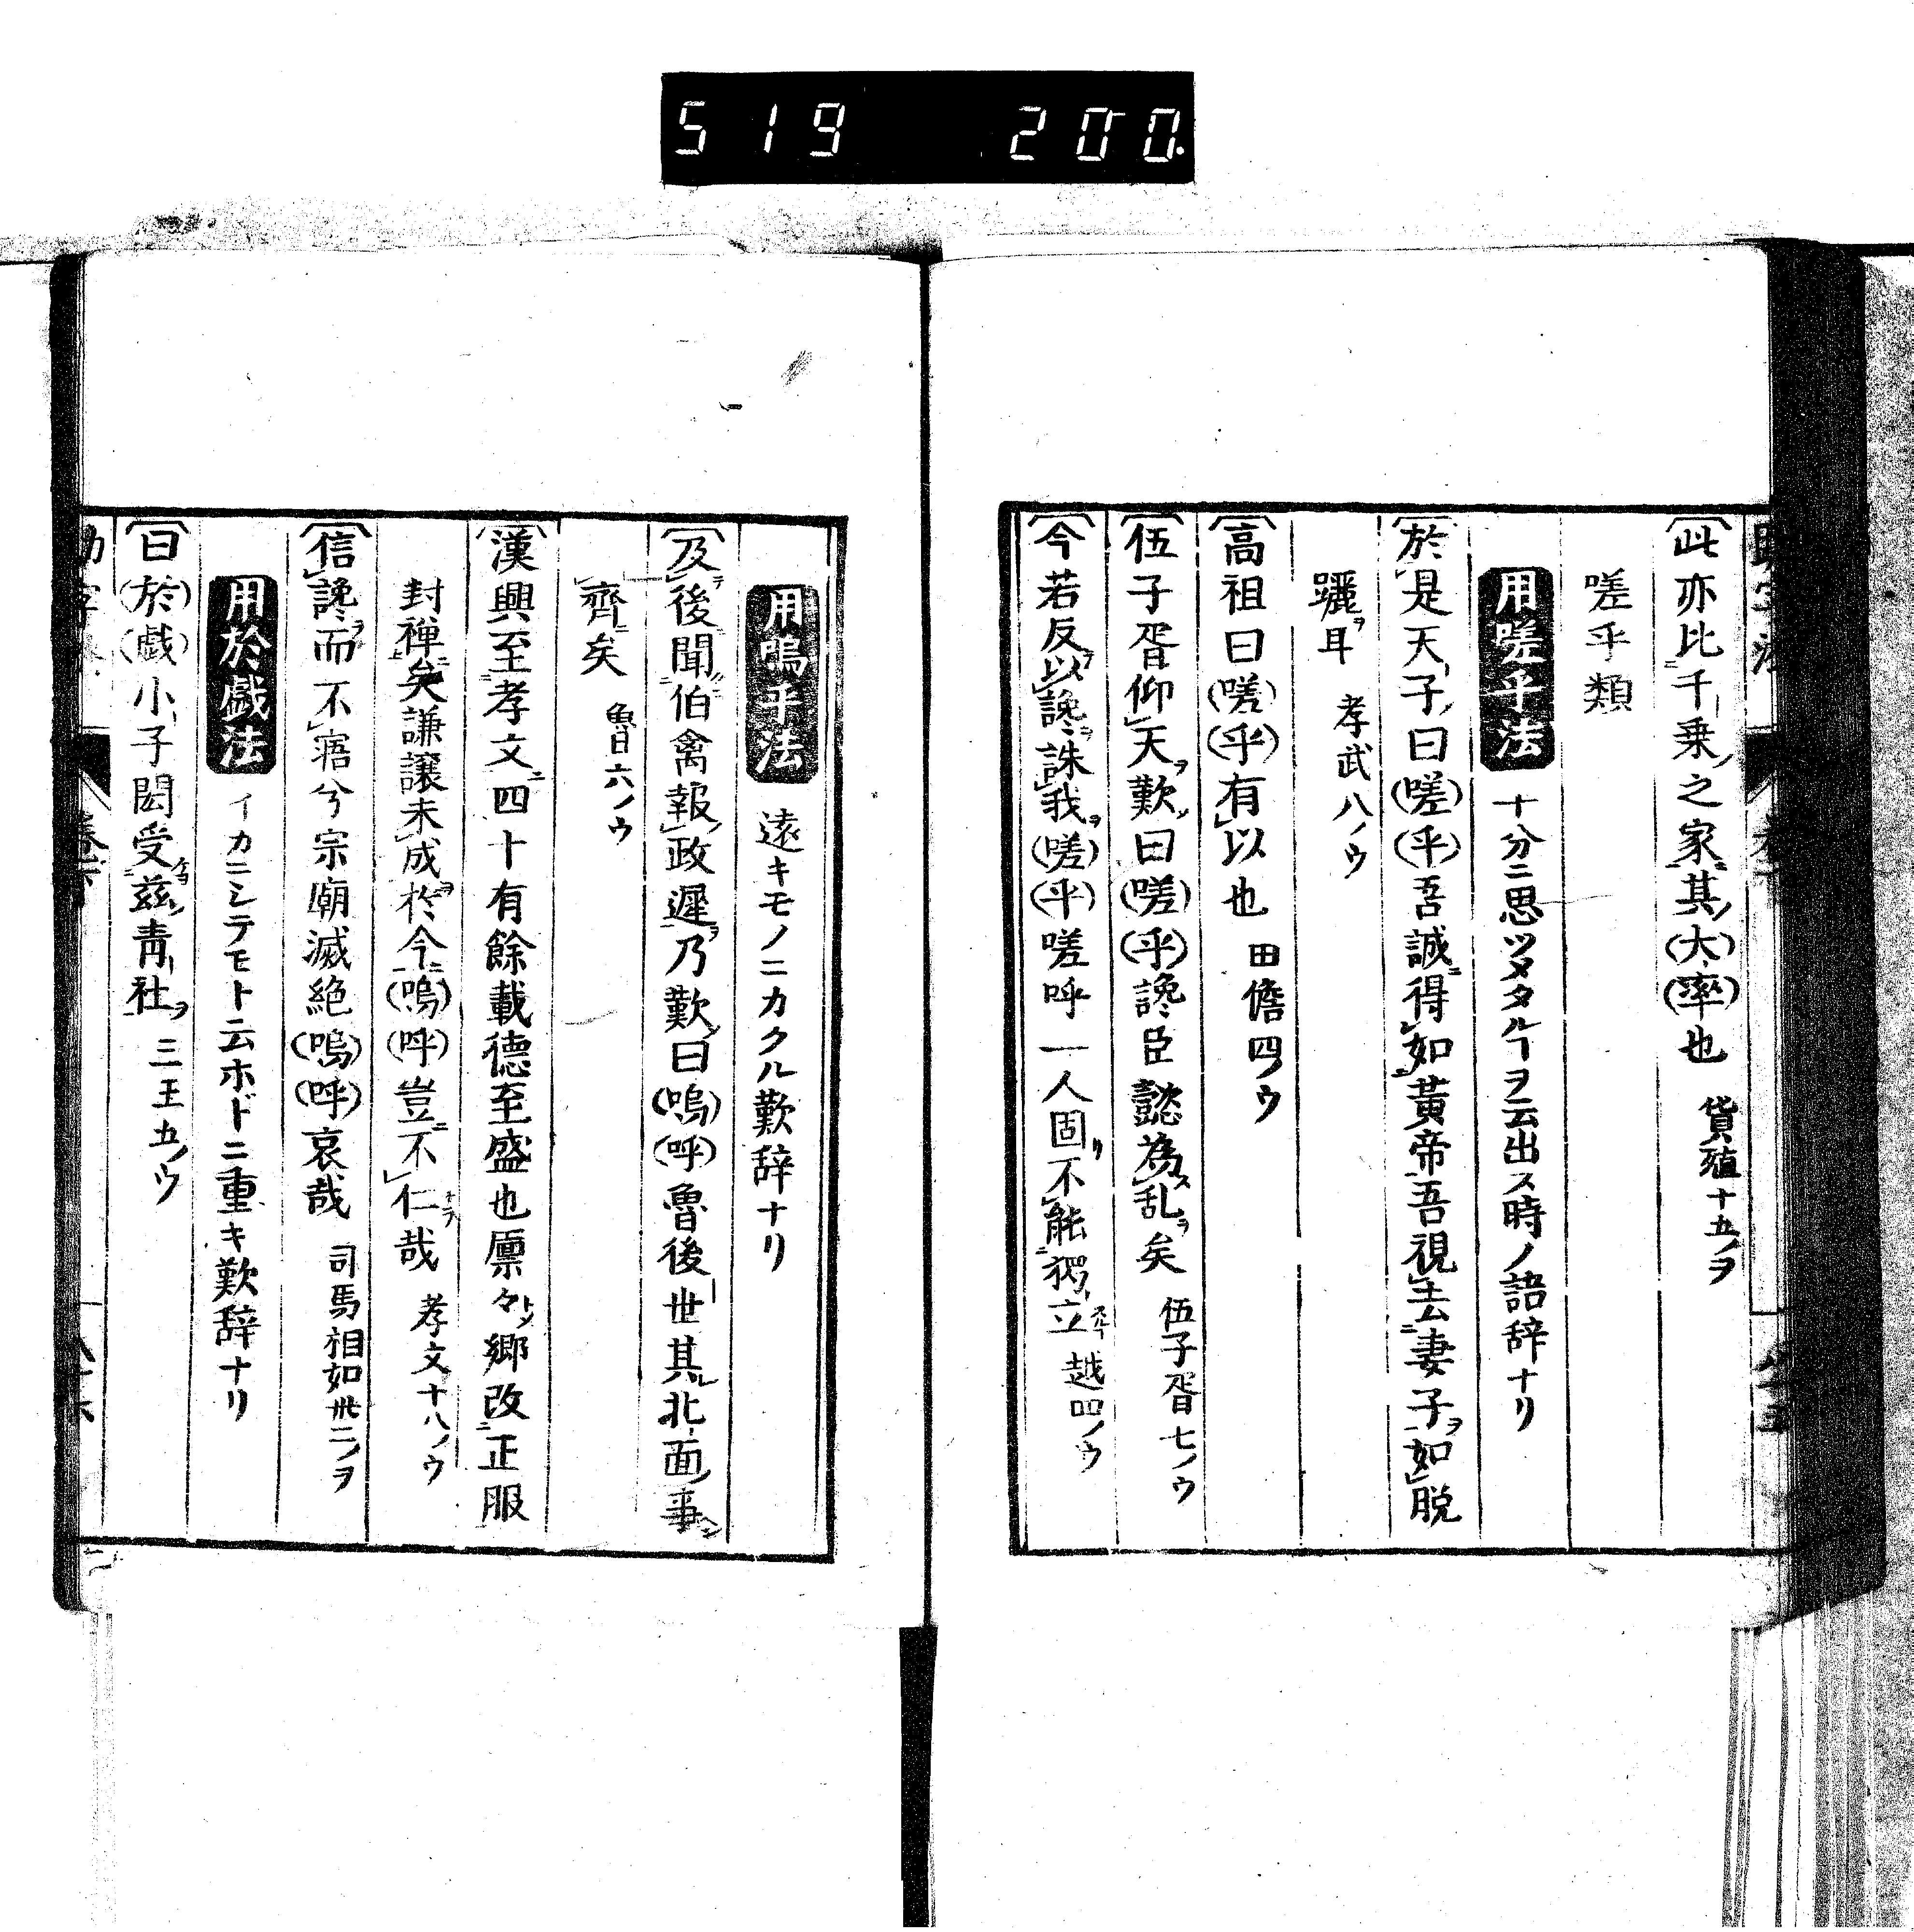 519 200.
此亦比千乗之家其(大)(率)也 貨殖十五ノヲ
嗟乎類
用嗟乎法 十分ニ思ツメタルヿヲ云出ス時ノ語辞ナリ
於是天子曰(嗟)(乎)吾誠得如黃帝吾視去妻子如脱
躧耳 孝武八ノウ
高祖曰(嗟)(乎)有以也 田儋四ノウ
伍子胥仰天歎曰(嗟)(乎)讒臣嚭為乱矣 伍子胥七ノウ
今若反以讒誅我(嗟)(乎)嗟呼一人固不能獨立 越四ノウ
用嗚乎法 遠キモノニカクル歎辞ナリ
及後聞伯禽報政遲乃歎曰(嗚)(呼)魯後世其北面事
齊矣 魯日六ノウ
漢興至孝文四十有餘載德至盛也廪々郷改正服
封禅矣謙讓未成於今(嗚)(呼)豈不仁哉 孝文十八ノウ
信讒而不寤兮宗廟滅絶(嗚)(呼)哀哉 司馬相如卅二ノヲ
用於戯法 イカニシテモト云ホドニ重キ歎辞ナリ
曰(於)(戯)小子閎受茲青社 三王五ノウ